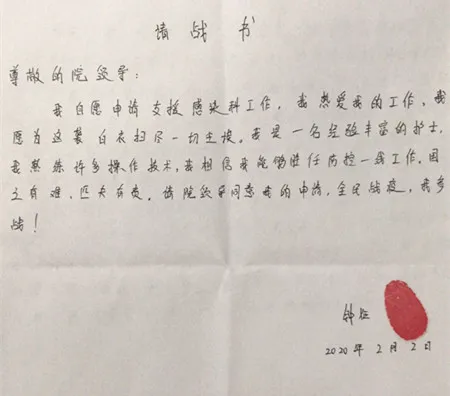 请战书
尊敬的院领导：
我自愿申请支援感染科工作，我热爱我的工作，我
愿为这袭白衣扫尽一切尘埃。我是一名经验丰富的护士，
我熟练许多操作技术，我相信我能够胜任防控一线工作。国
之有难，匹夫有责，请院领导同意我的申请，全民战疫，我参
战！
钟
2020年2月2日